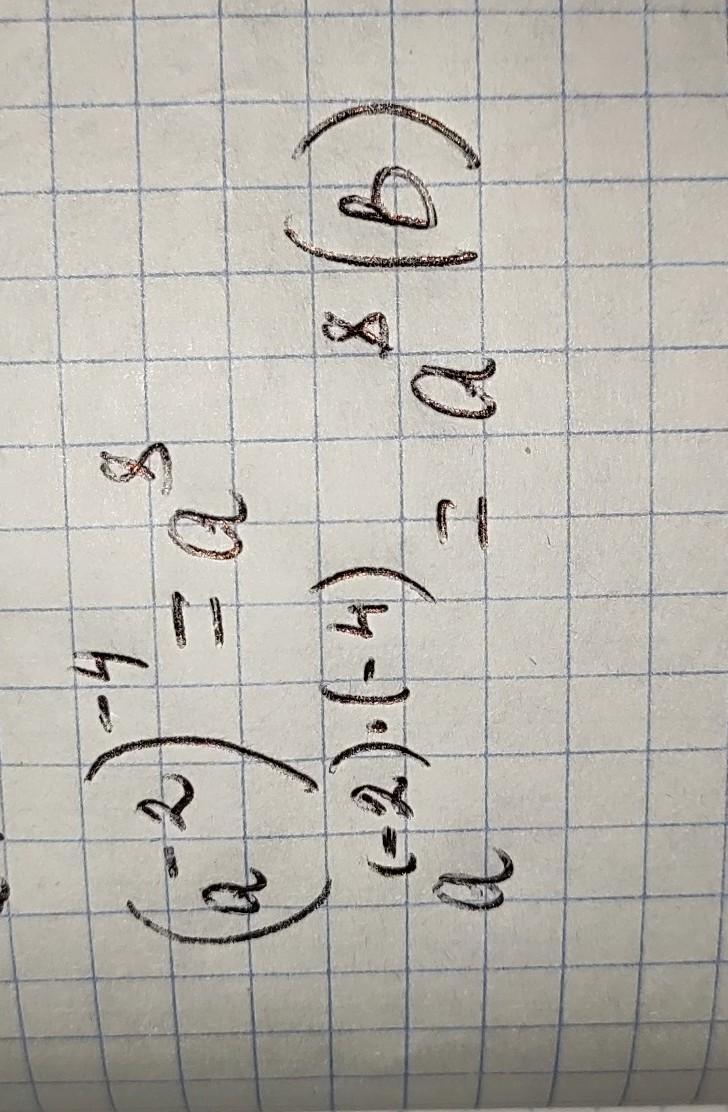 (a⁻²)⁻⁴ = a⁸
a⁽⁻²⁾·⁽⁻⁴⁾ = a⁸ (B)